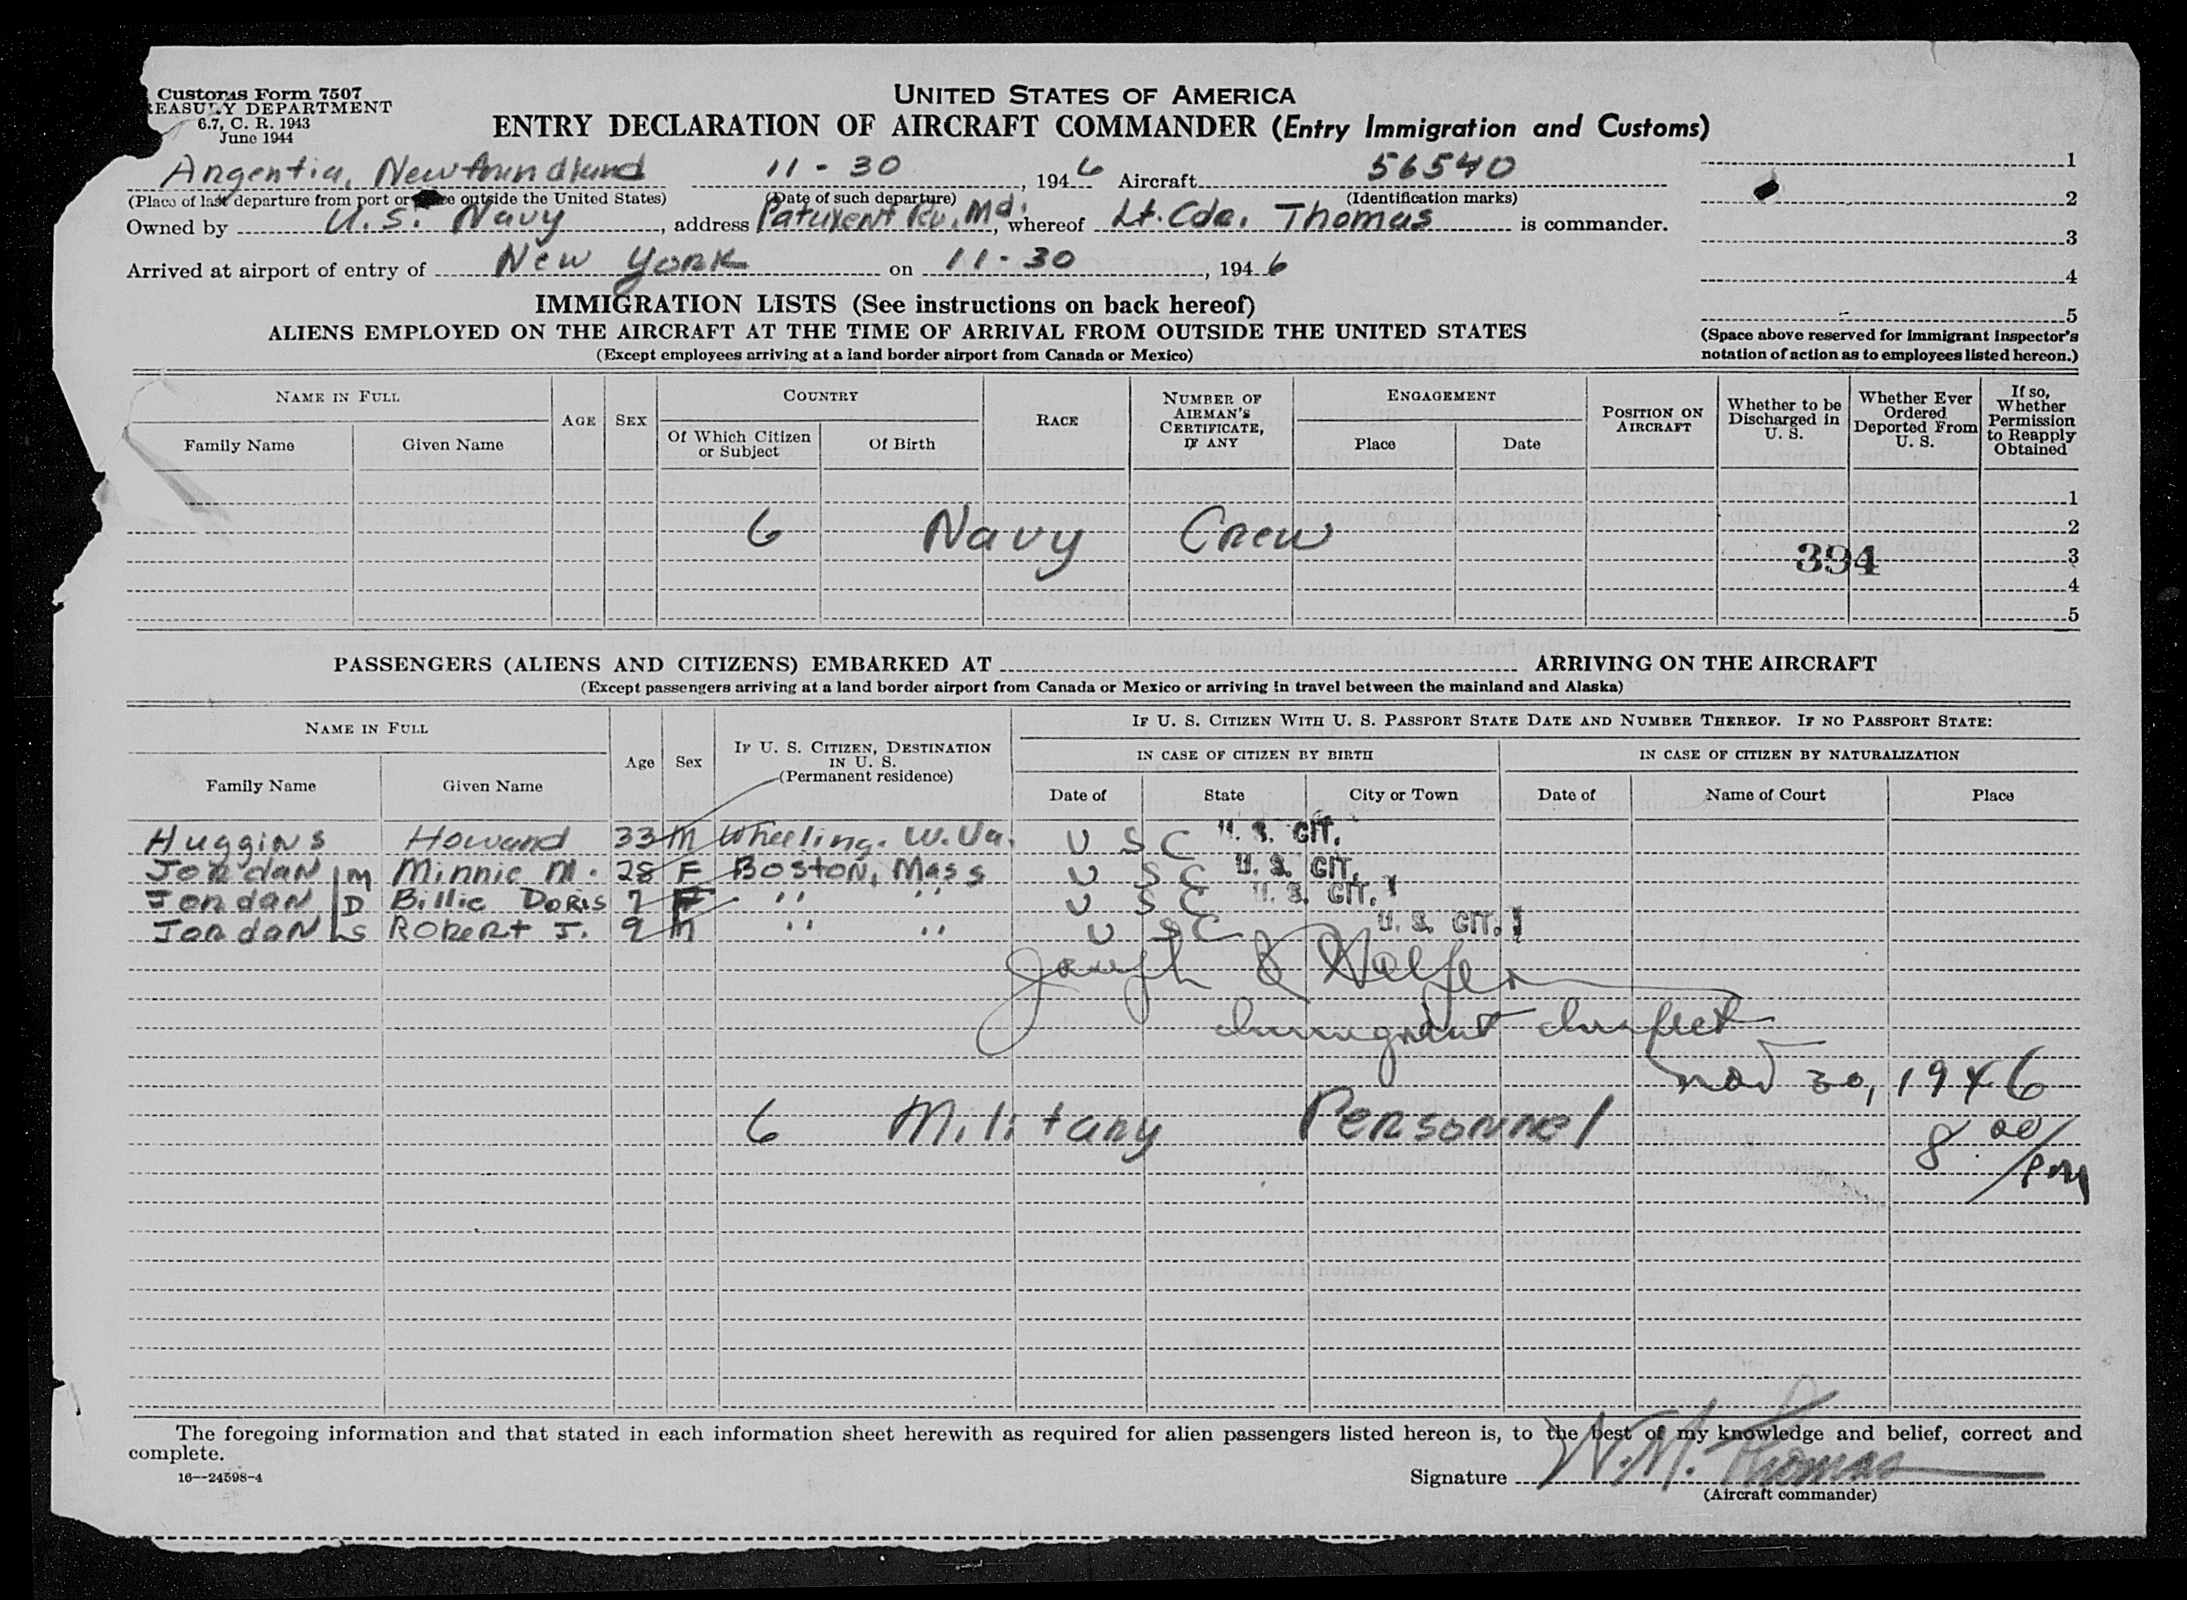 Customs Form 7507
TREASURY DEPARTMENT
6.7, C. R. 1943
June 1944
UNITED STATES OF AMERICA
ENTRY DECLARATION OF AIRCRAFT COMMANDER (Entry Immigration and Customs)
Argentia, Newfoundland 11-30, 1946 Aircraft 56540
(Place of last departure from port or place outside the United States) (Date of such departure) (Identification marks)
Owned by U.S. Navy, address Patuxent Rv. Md., whereof Lt. Cdr. Thomas is commander.
Arrived at airport of entry of New York on 11-30, 1946
1
2
3
4
5
(Space above reserved for Immigrant Inspector's
notation of action as to employees listed hereon.)
IMMIGRATION LISTS (See instructions on back hereof)
ALIENS EMPLOYED ON THE AIRCRAFT AT THE TIME OF ARRIVAL FROM OUTSIDE THE UNITED STATES
(Except employees arriving at a land border airport from Canada or Mexico)
NAME IN FULL
Family Name Given Name
AGE SEX
COUNTRY
Of Which Citizen or Subject Of Birth
RACE
NUMBER OF AIRMAN'S CERTIFICATE, IF ANY
ENGAGEMENT
Place Date
POSITION ON AIRCRAFT
Whether to be Discharged in U. S.
Whether Ever Ordered Deported From U. S.
If so, Whether Permission to Reapply Obtained
1
2
6 Navy Crew
394 3
4
5
PASSENGERS (ALIENS AND CITIZENS) EMBARKED AT ARRIVING ON THE AIRCRAFT
(Except passengers arriving at a land border airport from Canada or Mexico or arriving in travel between the mainland and Alaska)
NAME IN FULL
Family Name Given Name
Age Sex
IF U. S. CITIZEN, DESTINATION IN U. S.
(Permanent residence)
IF U. S. CITIZEN WITH U. S. PASSPORT STATE DATE AND NUMBER THEREOF. IF NO PASSPORT STATE:
IN CASE OF CITIZEN BY BIRTH IN CASE OF CITIZEN BY NATURALIZATION
Date of State City or Town Date of Name of Court Place
Huggins Howard 33 M Wheeling. W. Va. U S C U. S. CIT.
Jordan M Minnie M. 28 F Boston, Mass U S C U. S. CIT.
Jordan D Billie Doris 7 F " " U S C U. S. CIT.
Jordan S Robert J. 9 M " " U S C U. S. CIT.
Joseph
Immigrant Inspect
Nov 30, 1946
6 Military Personnel 8 00/PM
The foregoing information and that stated in each information sheet herewith as required for alien passengers listed hereon is, to the best of my knowledge and belief, correct and
complete.
16—24598-4
Signature W. M. Thomas
(Aircraft commander)